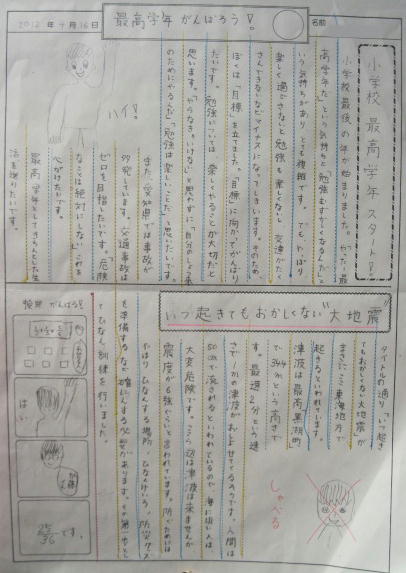 2012年4月16日
最高学年がんばろう!
名前
小学校最高学年スタート!
小学校最後の年が始まりました。「やった、最
高学年だ」という気持ちと「勉強むずかしくなるんだ」と
いう気持ちがありとても複雑です。でも、やっぱり
楽しく過ごさないと勉強も楽しくないし交流がたく
さんできないなどマイナスになってしまいます。そのため、
ぼくは「目標」を立てました。「目標」に向かってがんばり
たいです。勉強については楽しくやることが大切だと
思います。「やらなきゃいけない」と思わずに「自分のしょう来
のためにやるんだ」「勉強は楽しいことだ」と思いたいです。
また、愛知県では事故が
多発しています。交通事故は
ゼロを目指したいです。危険
なことは絶対にしない。これを
心がけたいです。
最高学年としてきちんとした生
活を送りたいです。
ハイ!
いつ起きてもおかしくない"大地震"
タイトルの通り「いつ起き
てもおかしくない大地震」が
まさにここ東海地方で
起きるといわれています。
津波は最高、黒潮町
で34.4mという高さで
す。最速2分という速
さで1mの津波がおしよせてくるのです。人間は
50cmで流されるといわれているので、海に近い人は
大変危険です。ここら辺は津波は来ませんが
震度が6強ぐらいと言われています。防ぐためには
やはりひなんする場所、ひなんけいろ、防災グッズ
を準備するなど確にんする必要があります。その第一歩とし
てひなん訓練を行いました。
しゃべる
授業がんばるぞ
はい
25/36です。